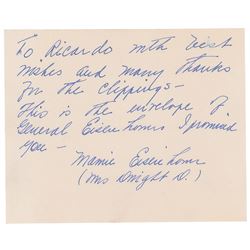 To Ricardo with best
wishes and many thanks
for the clippings—
This is the envelope of
General Eisenhowers I promised
you—
Mamie Eisenhower
(Mrs Dwight D.)